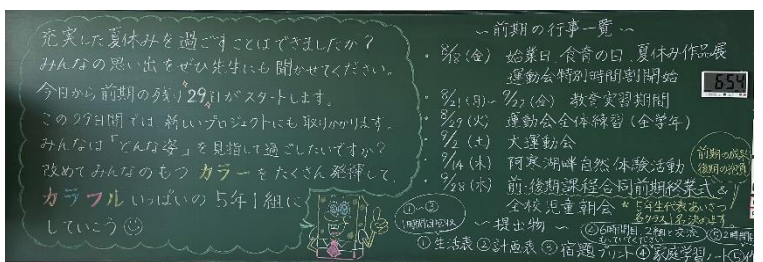 充実した夏休みを過ごすことはできましたか?
みんなの思い出をぜひ先生にも聞かせてください。
今日から前期の残り"29"日がスタートします。
この29日間では、新しいプロジェクトにも取りかかります。
みんなは「どんな姿」を目指して過ごしたいですか?
改めてみんなのもつカラーをたくさん発揮して、
カラフルいっぱいの5年1組に
していこう
~前期の行事一覧~
・8/18(金) 始業日、食育の日、夏休み作品展
運動会特別時間割開始
・8/21(月)~9/22(金) 教育実習期間
・8/29(火) 運動会全体練習(全学年)
・9/2(土) 大運動会
・9/14(木) 阿寒湖畔自然体験活動
・9/28(木) 前・後期課程合同前期終業式&
全校児童朝会
*5年生代表あいさつ
各クラス1名決めます
前期の成果
後期の抱負
654
①~③
1時間目回収
~提出物~
④6時間目、2組と交流
⑤2時間目
①生活表 ②計画表 ③宿題プリント ④家庭学習ノート ⑤